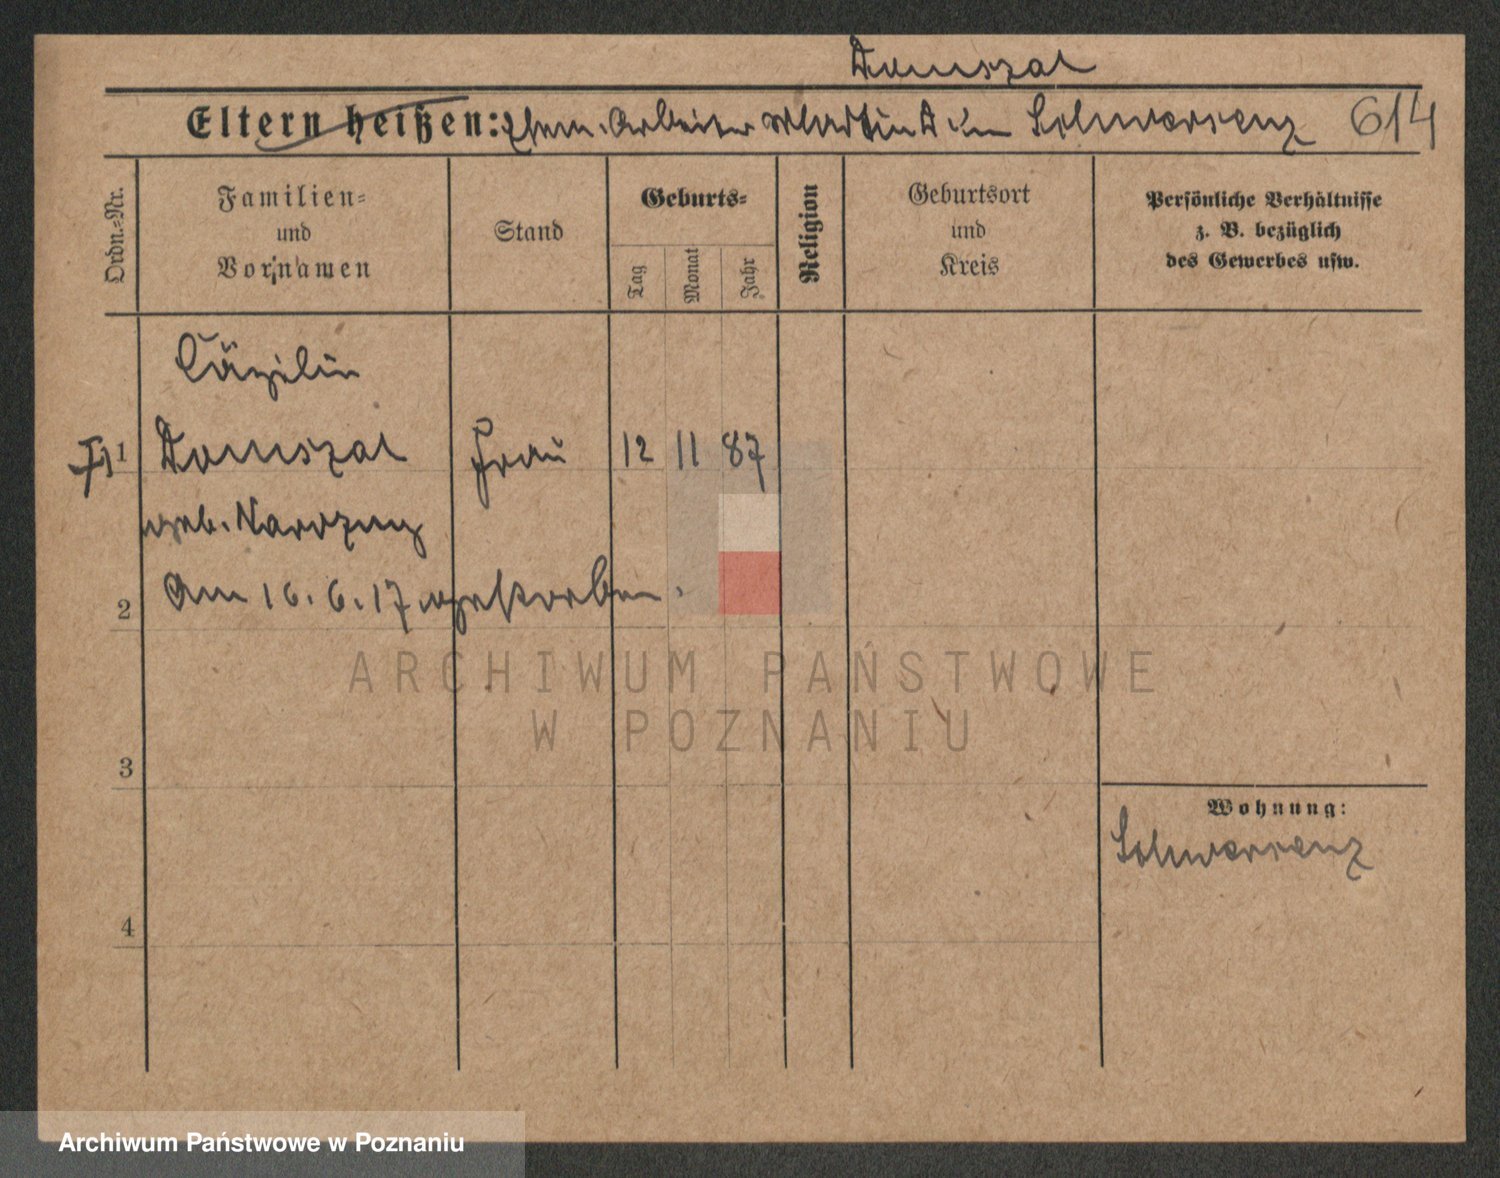 Domszal
Eltern heißen: Ehem. Arbeiter Martin D. in Schwersenz 614
Ordn.-Nr.
Familien-
und
Vornamen
Stand
Geburts-
Tag
Monat
Jahr
Religion
Geburtsort
und
Kreis
Persönliche Verhältnisse
z. B. bezüglich
des Gewerbes usw.
Cäzilie
1 Domszal Frau 12 11 87
geb.
2 Am 16. 6. 17 gestorben.
ARCHIWUM PAŃSTWOWE
W POZNANIU
3
Wohnung:
Schwersenz
4
Archiwum Państwowe w Poznaniu